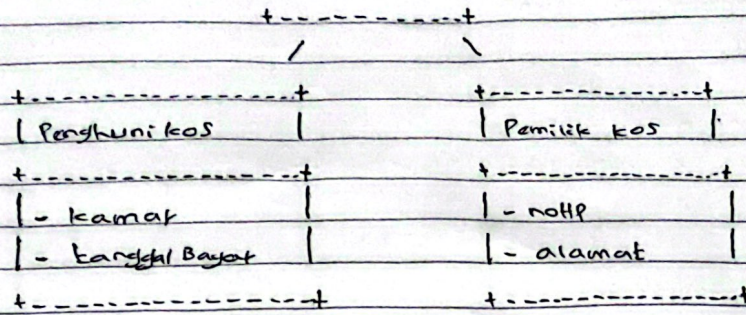 +-----------+
/ \
+----------------+ +--------------+
| Penghuni kos | | Pemilik kos |
+----------------+ +--------------+
| - kamar | | - noHP |
| - tanggal Bayar | | - alamat |
+----------------+ +--------------+